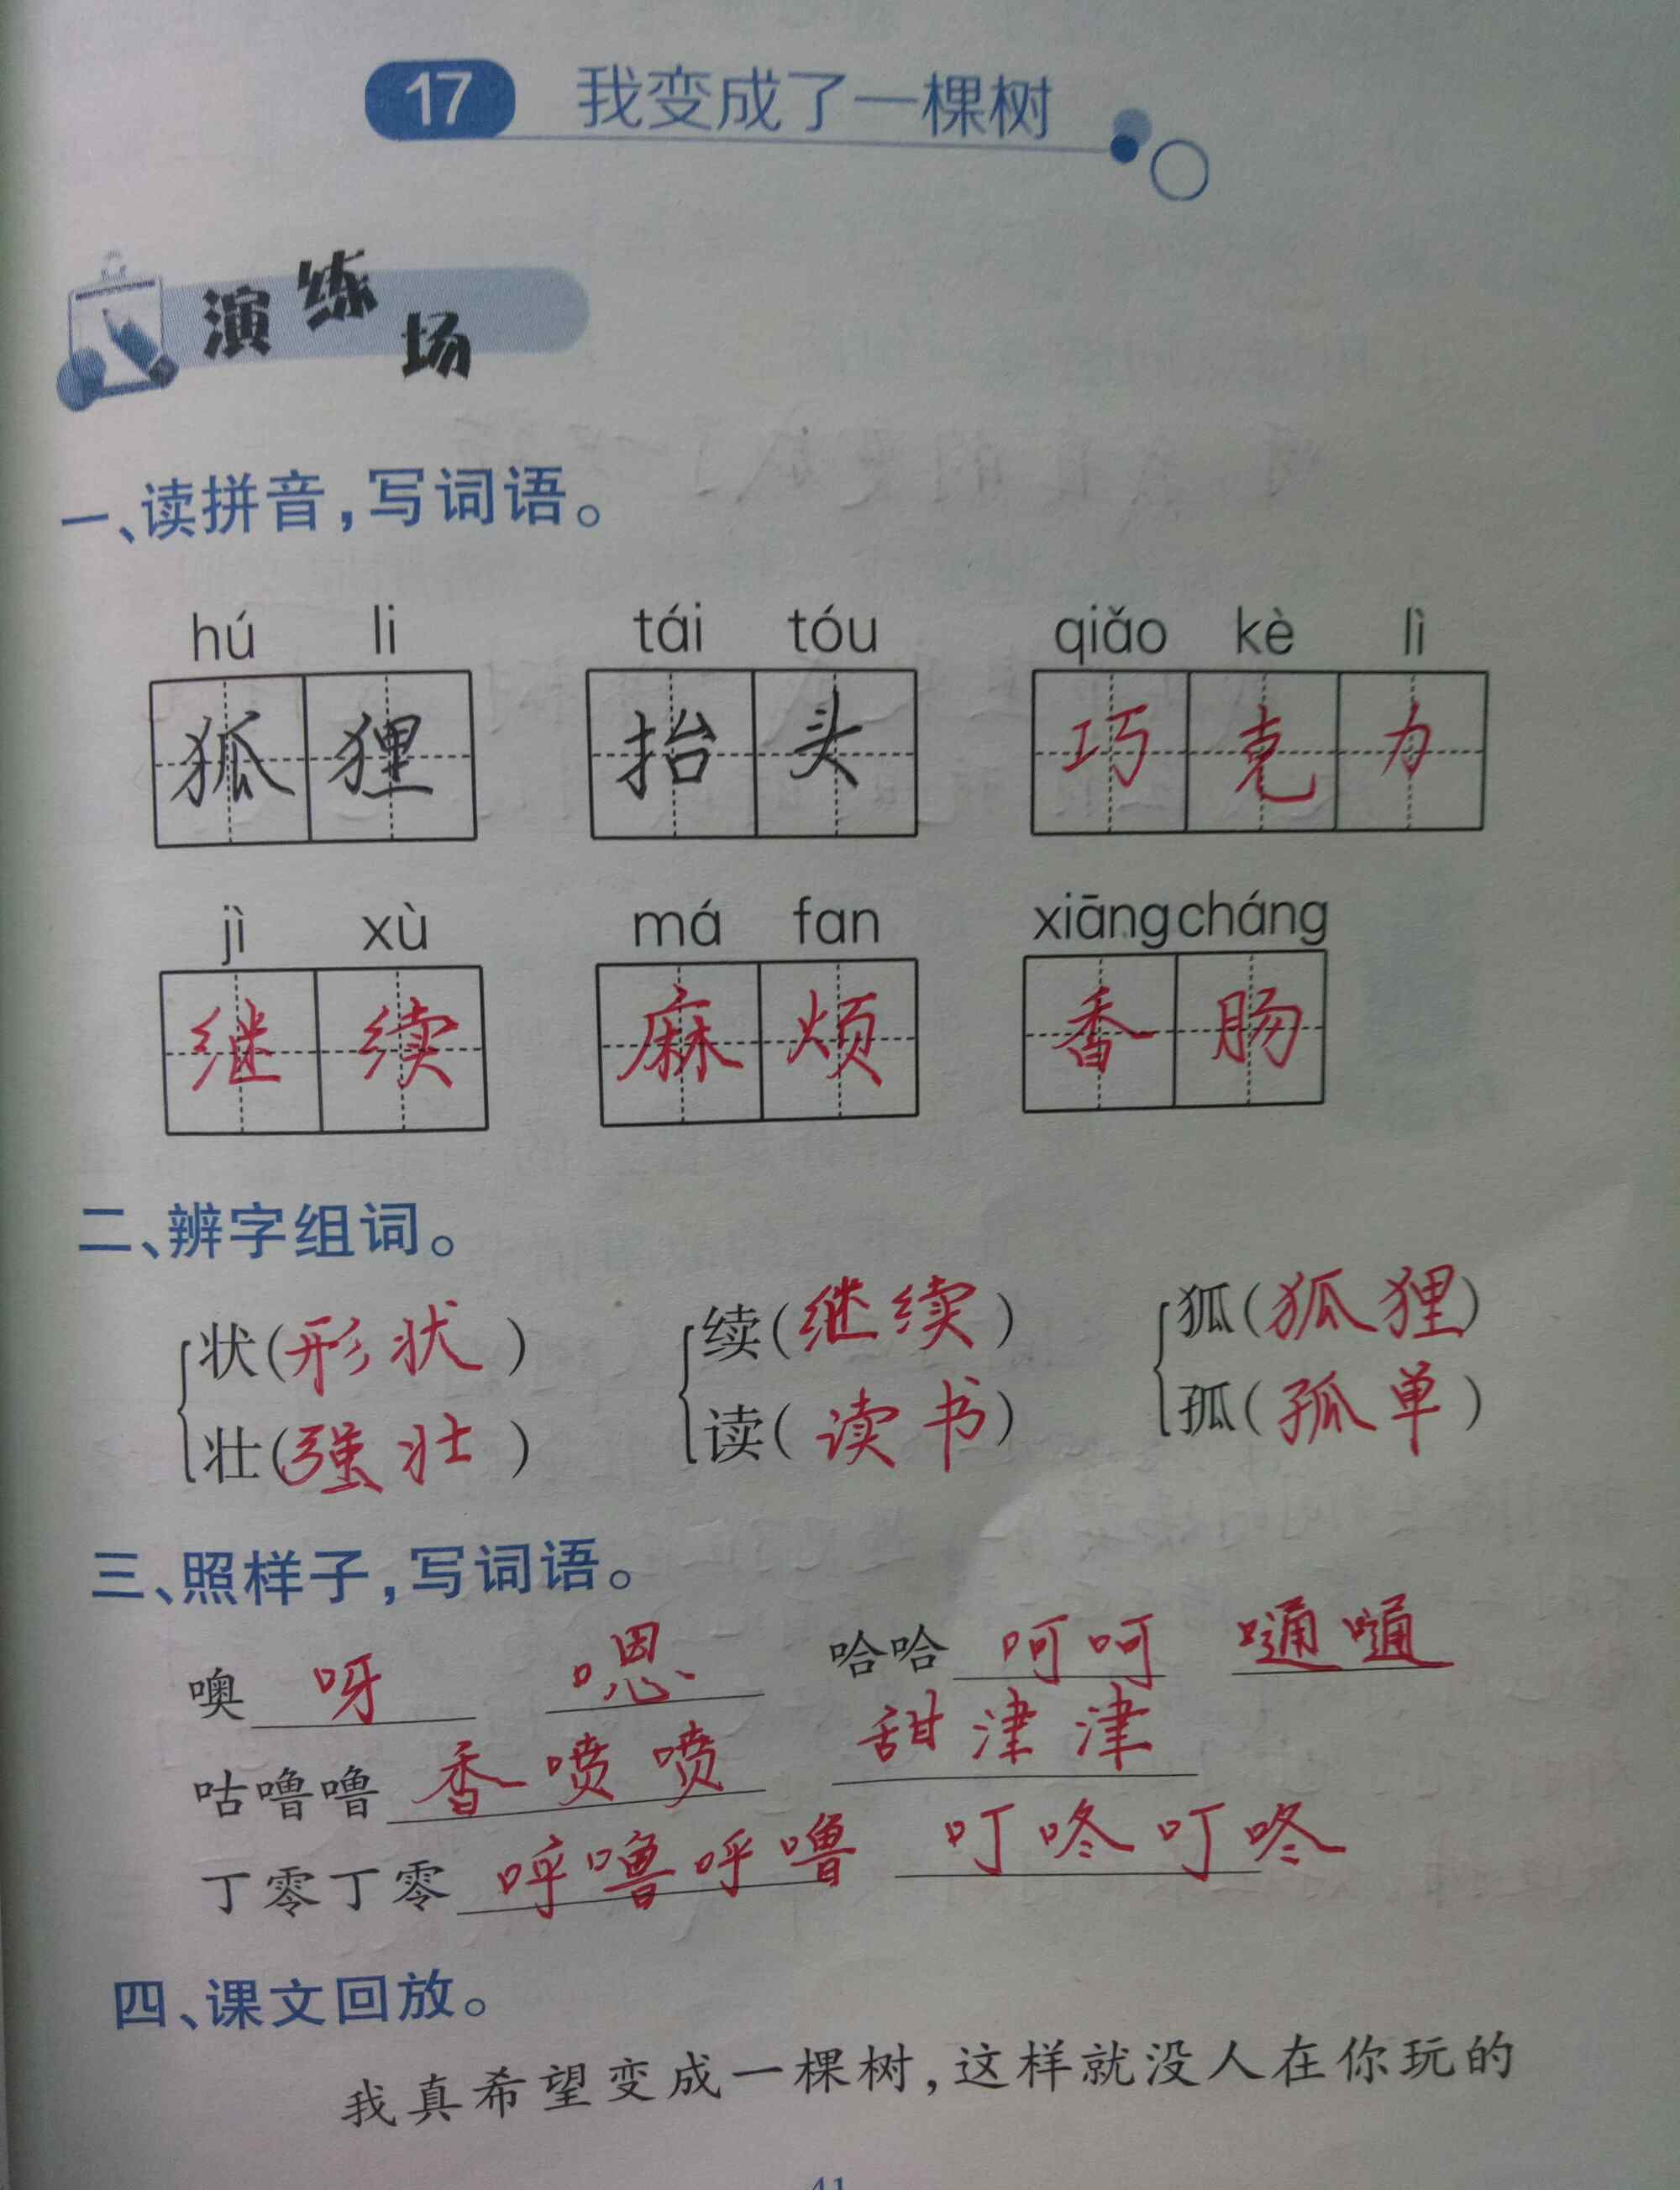 17 我变成了一棵树
演练场
一、读拼音，写词语。
hú li tái tóu qiǎo kè lì
狐狸 抬头 巧克力
jì xù má fan xiāng cháng
继续 麻烦 香肠
二、辨字组词。
状(形状) 续(继续) 狐(狐狸)
壮(强壮) 读(读书) 孤(孤单)
三、照样子，写词语。
噢 呀 嗯 哈哈 呵呵 嗵嗵
咕噜噜 香喷喷 甜津津
丁零丁零 呼噜呼噜 叮咚叮咚
四、课文回放。
我真希望变成一棵树，这样就没人在你玩的
41